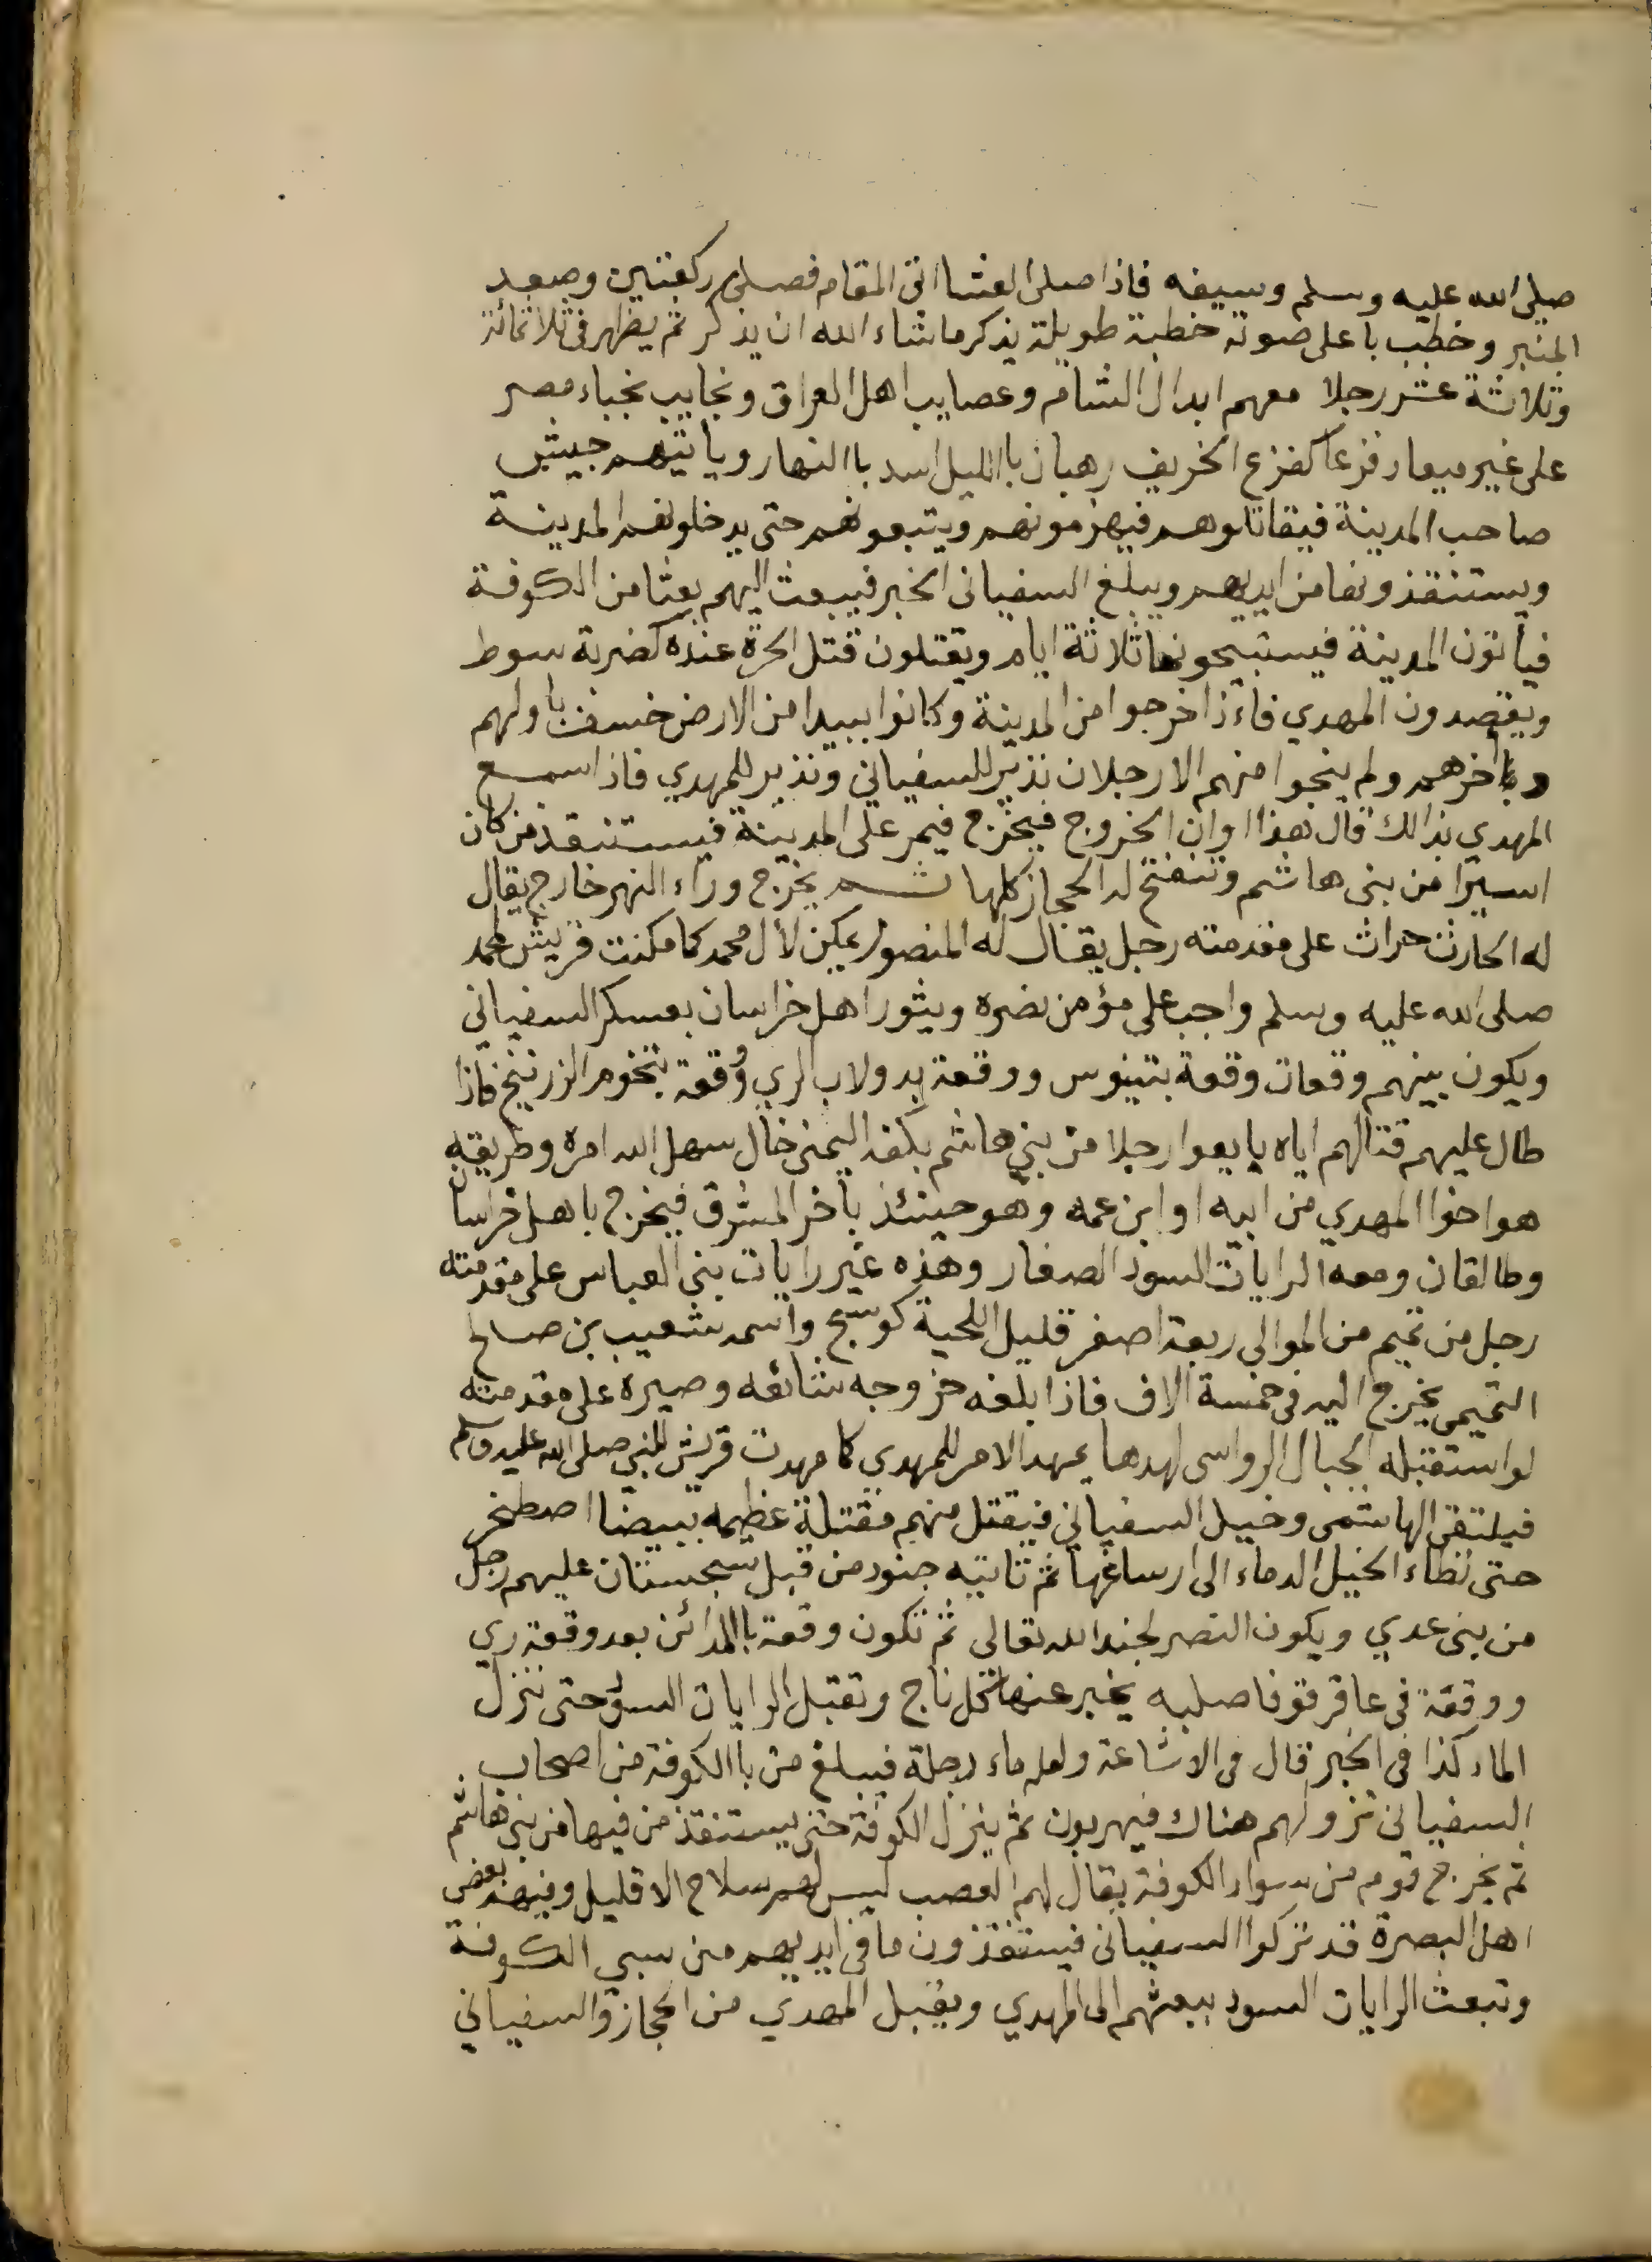 صلى الله عليه وسلم وسيفه فاذا صلى العشا اتى المقام فصلى ركعتين وصعد
المنبر وخطب باعلى صوته خطبة طويلة يذكر ماشاء الله ان يذكر ثم يظهر فى ثلاثمائة
وثلاثة عشر رجلا معهم ابدال الشام وعصايب اهل العراق ونجايب نجباء مصر
على غير ميعاد قزعا كقزع الخريف رهبان بااليل اسد باالنهار وياتيهم جيش
صاحب المدينة فيقاتلوهم فيهزمونهم ويتبعونهم حتى يدخلونهم المدينة
ويستنقذونها من ايديهم ويبلغ السفيانى الخبر فيبعث اليهم بعثا من الكوفة
فيأتون المدينة فيستبيحونها ثلاثة ايام ويقتلون قتل الحرة عنده كضربة سوط
ويقصدون المهدي فاءذا خرجوا من المدينة وكانوا ببيدا من الارض خسف باولهم
وبأخرهم ولم ينجوا منهم الا رجلان نذير للسفياني ونذير للمهدي فاذا سمع
المهدي بذالك قال هذا اوان الخروج فيخرج فيمر على المدينة فيستنقذ من كان
اسيرا من بنى هاشم وتنفتح له الحجاز كلها ثم يخرج وراء النهر خارج يقال
له الحارث حراث على مقدمته رجل يقال له المنصور يمكن لأل محمد كما مكنت قريش لمحمد
صلى الله عليه وسلم واجب على مؤمن نصره ويثور اهل خراسان بعسكر السفياني
ويكون بينهم وقعات وقعة بتينوس ووقعة بدولاب الري ووقعة بتخوم الزرنيج فاذا
طال عليهم قتالهم اياه بايعوا رجلا من بني هاشم بكفه اليمنى خال سهل الله امره وطريقه
هو اخوا المهدي من ابيه او ابن عمه وهو حينئذ بأخر المشرق فيخرج باهل خراسان
وطالقان ومعه الرايات السود الصغار وهذه غير رايات بنى العباس على مقدمته
رجل من تميم من الموالى ربعة اصفر قليل اللحية كوسج واسمه شعيب بن صالح
التميمى يخرج اليه فى خمسة الاف فاذا بلغه خروجه شائعه وصيره على مقدمته
لو استقبله الجبال الرواسى لهدها يمهد الامر للمهدي كما مهدت قريش للنبي صلى الله عليه وسلم
فيلتقى الهاشمى وخيل السفيانى فيقتل منهم مقتلة عظيمه ببيضا اصطخر
حتى تطاء الخيل الدماء الى ارساغها ثم تاتيه جنود من قبل سجستان عليهم رجل
من بنى عدي ويكون النصر لجند الله تعالى ثم تكون وقعة باالمدائن بعد وقعة ري
ووقعة فى عاقرقوفا صلبيه يخبر عنها كل ناج وتقبل الرايات السود حتى تنزل
الماء كذا فى الخبر قال فى الاشاعة ولعله ماء دجلة فيبلغ من باالكوفة من اصحاب
السفيانى نزولهم هناك فيهربون ثم ينزل الكوفة حتى يستنقذ من فيها من بنى هاشم
ثم يخرج قوم من سواد الكوفة يقال لهم العصب ليس لهم سلاح الا قليل وفيهم بعض
اهل البصرة قد تركوا السفيانى فيستنقذون ما فى ايديهم من سبي الكوفة
وتبعث الرايات السود ببيعثهم الى المهدي ويقبل المهدي من الحجاز والسفياني